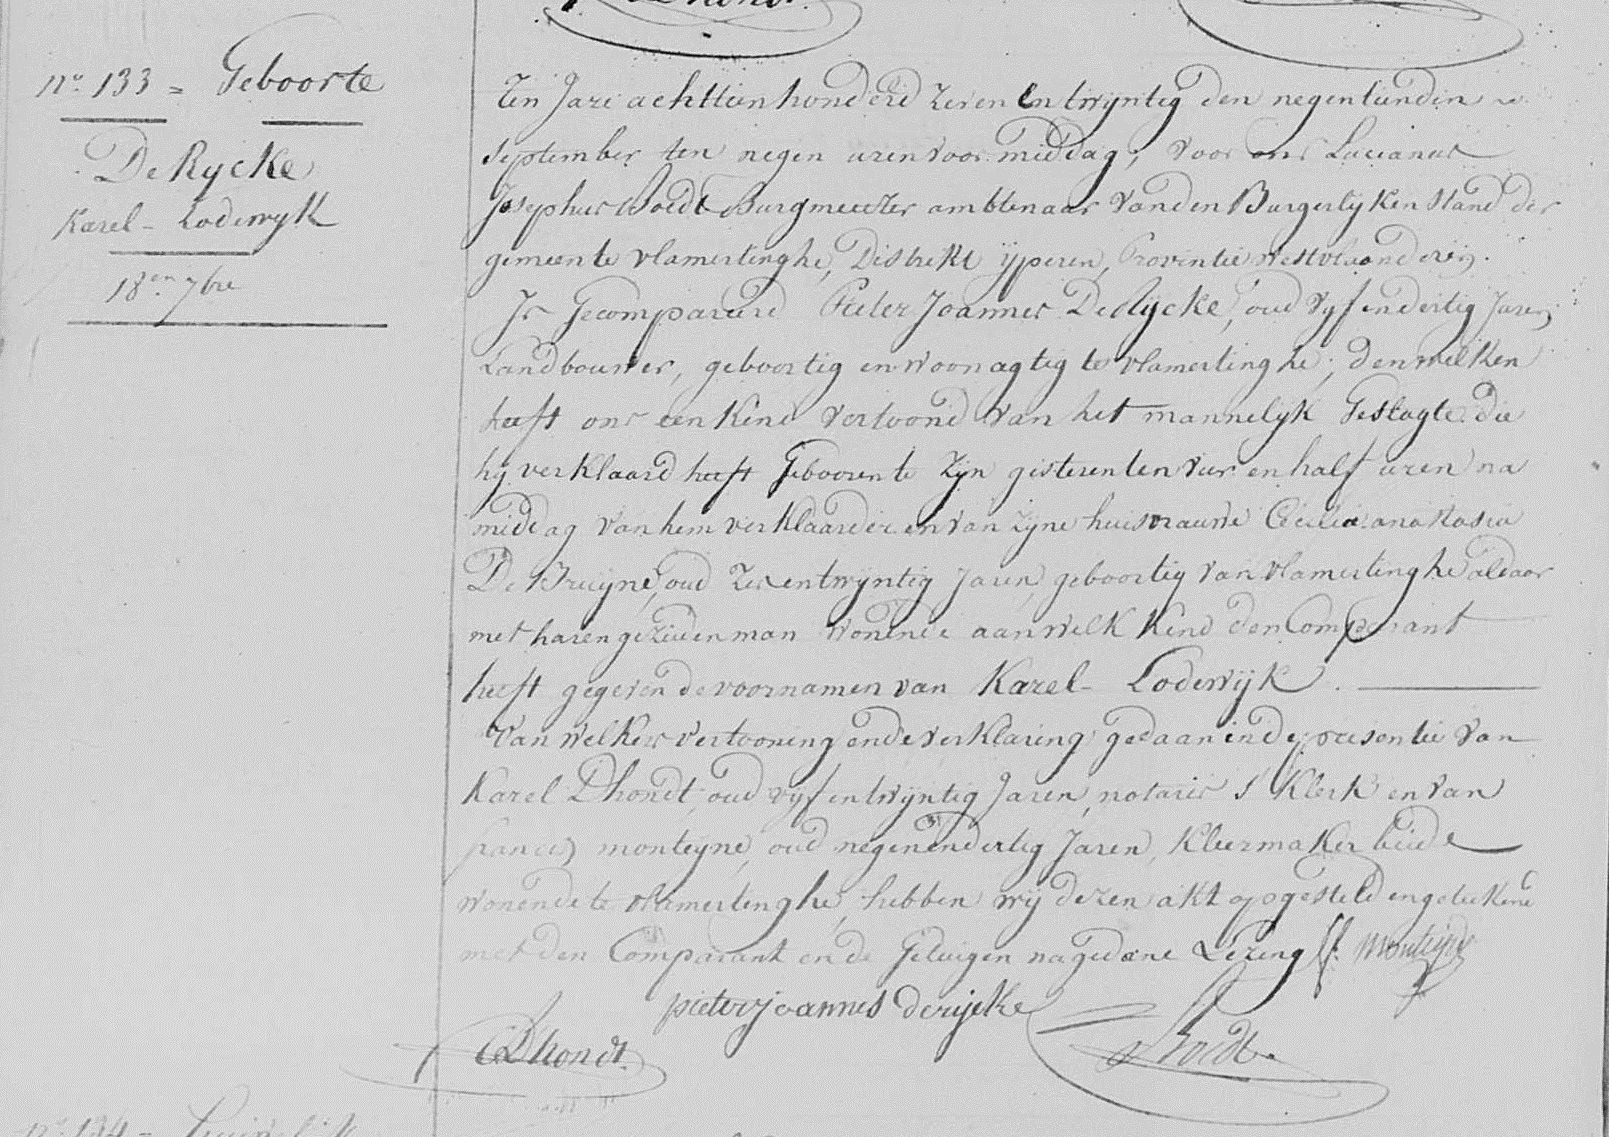 Dhondt.
No. 133 = Geboorte
De Rycke
Karel - Lodewyk
18en 7bre
Ten Jare achttien honderd zeven en twijntig den negentienden
september ten negen uren voormiddag, voor ons Lucianus
Josephus Boedt Burgmeester ambtenaar van den Burgerlyken Stand der
gemeente vlamertinghe, Distrikt ijperen, Provintie westvlaanderen.
Is Gecompareerd Pieter Joannes De Rycke, oud vyf en dertig Jaren
Landbouwer, geboortig en woonagtig te vlamertinghe; denwelken
heeft ons een kind vertoond van het mannelijk Geslagte die
hy verklaard heeft Gebooren te Zijn gisteren ten vier en half uren na
middag van hem verklaarder en van zijne huisvrauwe Cecilia anastasia
De Bruyne, oud zes entwyntig Jaren, geboortig van vlamertinghe aldaar
met haren gezeiden man wonende aan welk kind den Comparant
heeft gegeven de voornamen van Karel - Lodewijk.
Van welker vertooning ende verklaring gedaan in de presentie van
Karel Dhondt, oud vyf entwijntig Jaren, notaris's Klerk en van
francis monteyne, oud negenendertig Jaren, Kleermaker beide
wonende te vlamertinghe, hebben wij dezen akt opgesteld en geteekend
met den Comparant en de Getuigen na gedane Lezing ff. Monteyne
pieter joannes derijcke
C Dhondt. Boedt.
no. 134 =